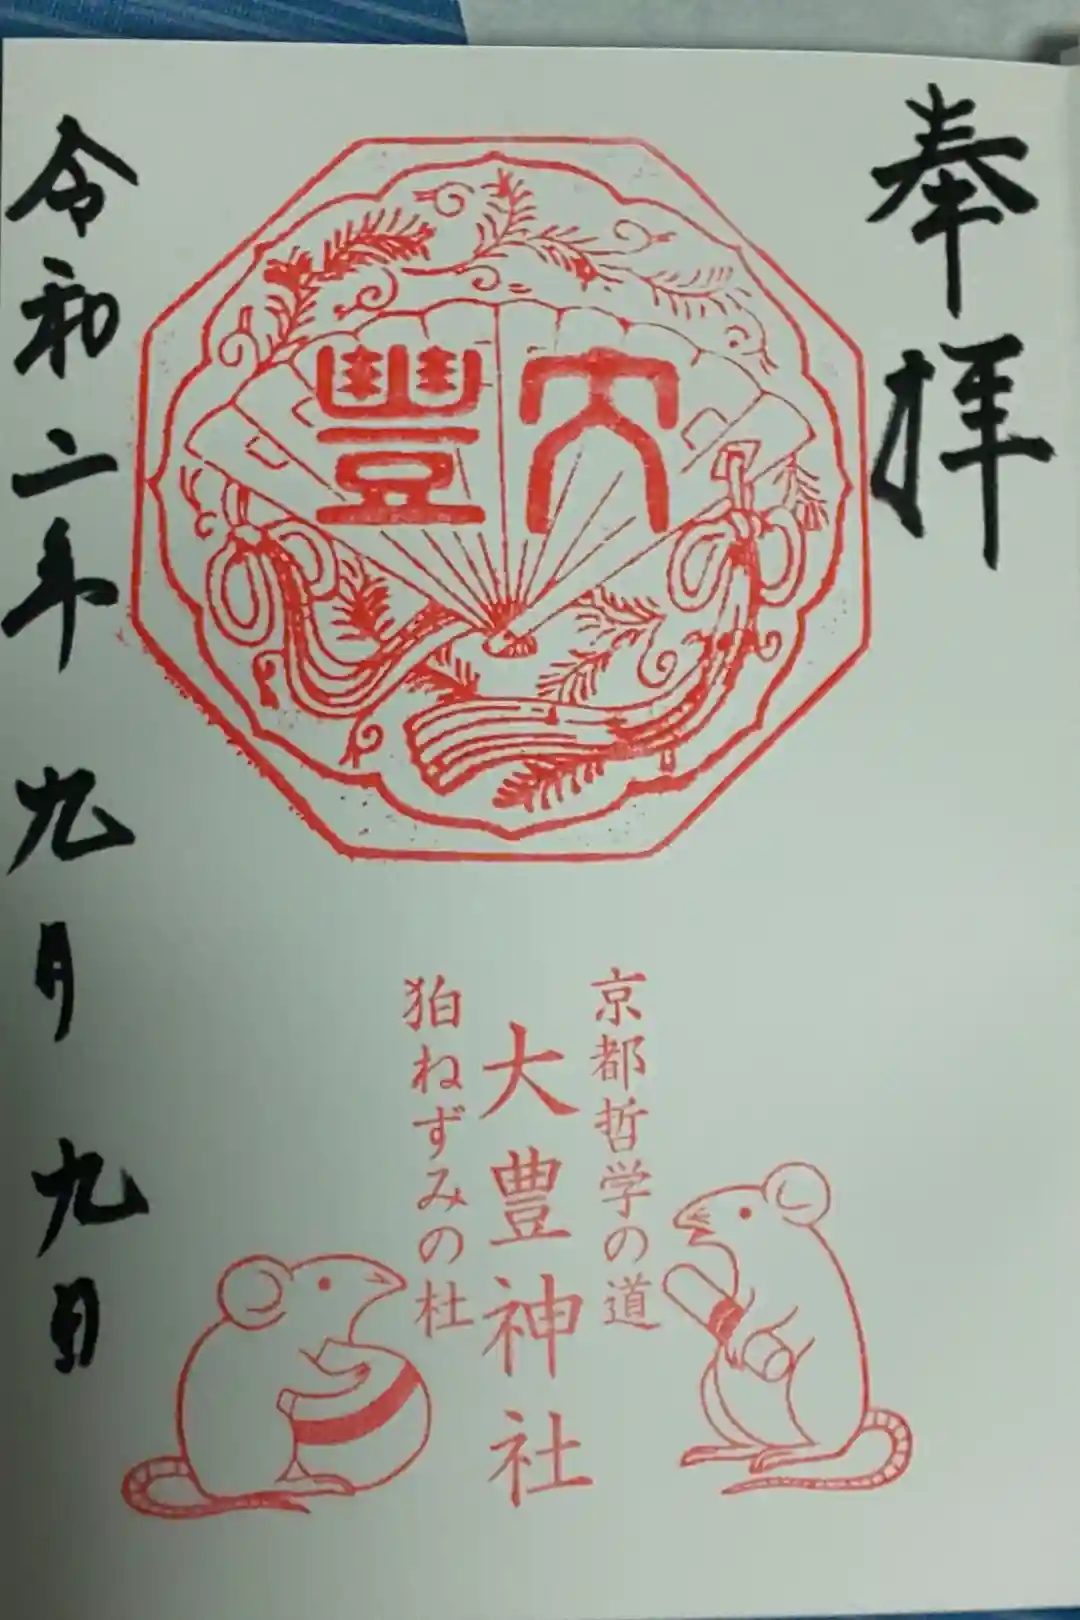 奉拝
大豊
京都哲学の道
大豊神社
狛ねずみの杜
令和二年 九月 九日